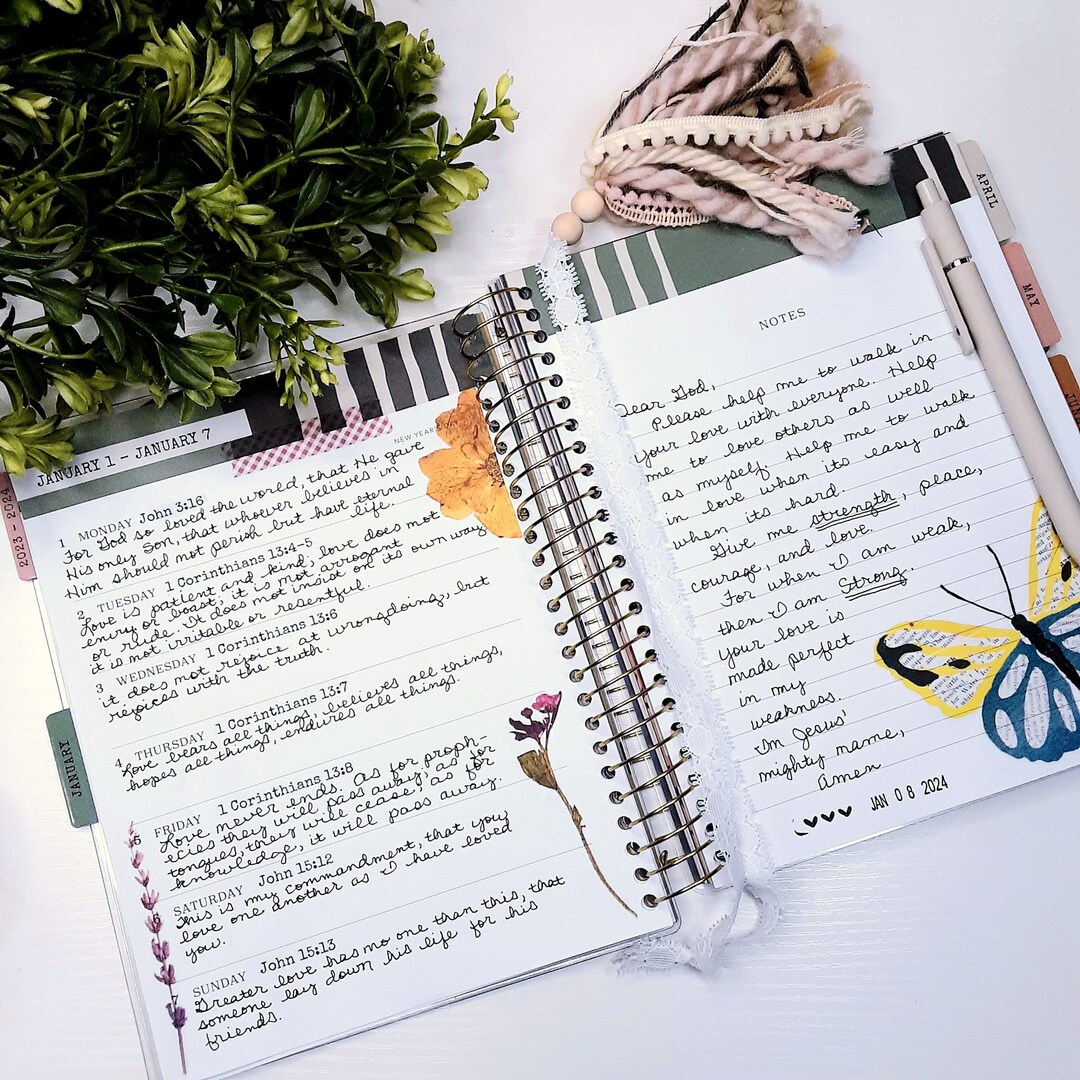 JANUARY 1 – JANUARY 7
NEW YEAR'S DAY
1 MONDAY John 3:16
For God so loved the world, that He gave
His only Son, that whoever believes in
Him should not perish but have eternal
life.
2 TUESDAY 1 Corinthians 13:4-5
Love is patient and kind; love does not
envy or boast; it is not arrogant
or rude. It does not insist on its own way;
it is not irritable or resentful.
3 WEDNESDAY 1 Corinthians 13:6
it does not rejoice at wrongdoing, but
rejoices with the truth.
4 THURSDAY 1 Corinthians 13:7
Love bears all things, believes all things,
hopes all things, endures all things.
5 FRIDAY 1 Corinthians 13:8
Love never ends. as for proph-
ecies they will pass away; as for
tongues, they will cease; as for
knowledge, it will pass away.
6 SATURDAY John 15:12
This is my commandment, that you
love one another as I have loved
you.
7 SUNDAY John 15:13
Greater love has no one than this, that
someone lay down his life for his
friends.
2023 - 2024
JANUARY
NOTES
Dear God,
Please help me to walk in
your love with everyone. Help
me to love others as well
as myself. Help me to walk
in love when its easy and
when its hard.
Give me strength, peace,
courage, and love.
For when I am weak,
then I am strong.
your love is
made perfect
in my
weakness.
In Jesus'
mighty name,
Amen
JAN 08 2024
APRIL
MAY